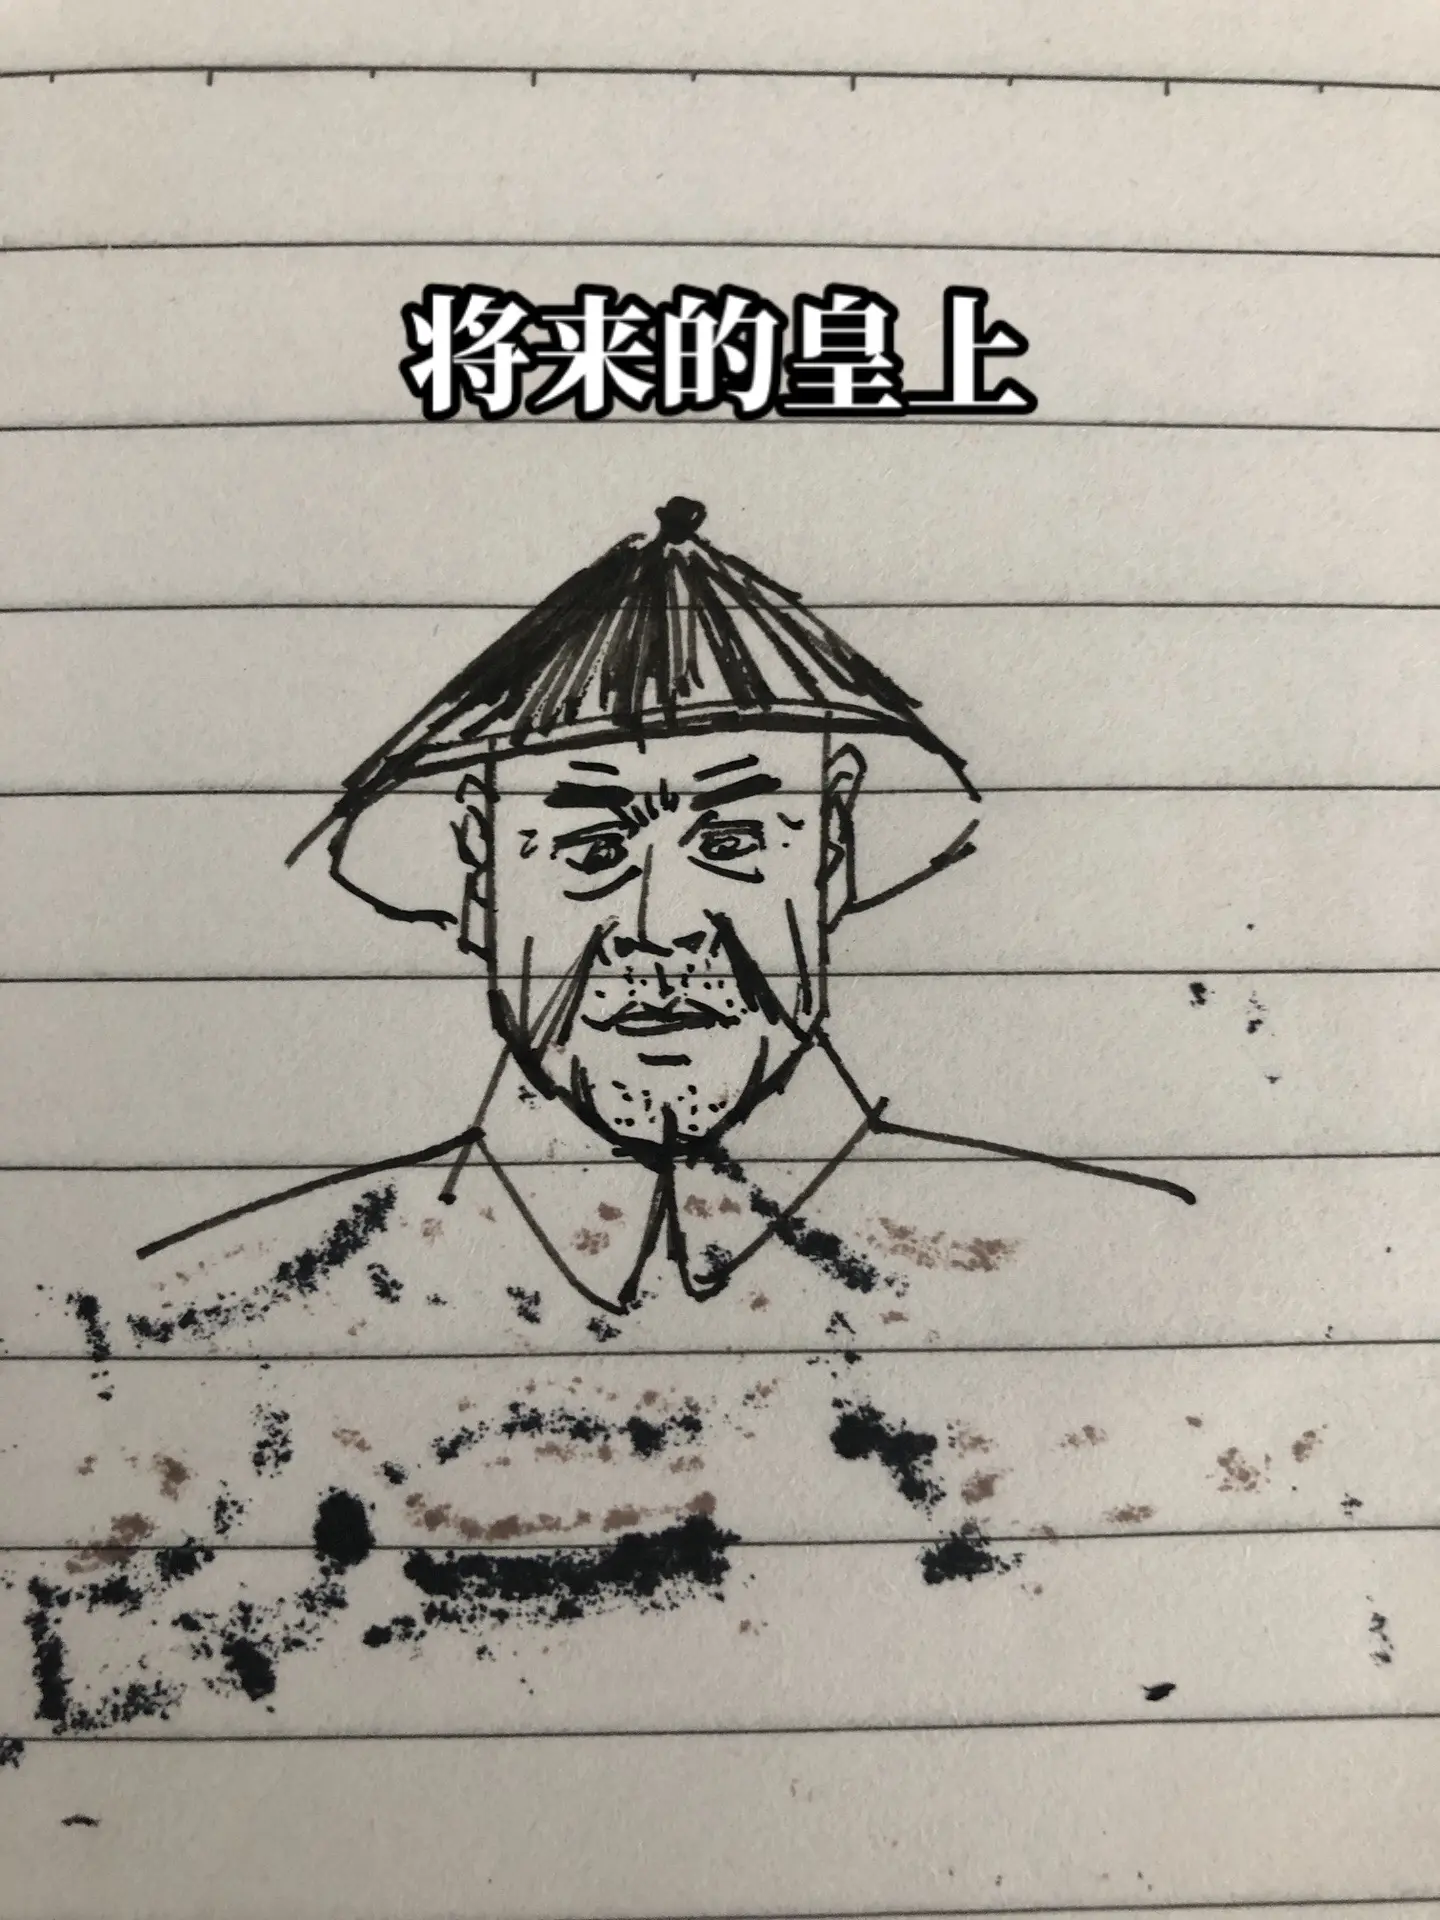 将来的皇上